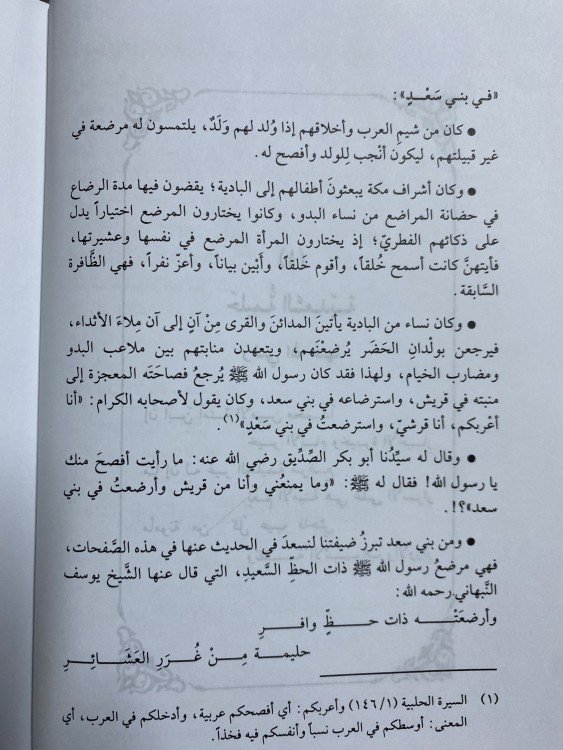 «في بني سَعْدٍ»:
• كان من شيم العرب وأخلاقهم إذا وُلد لهم وَلَدٌ، يلتمسون له مرضعة في
غير قبيلتهم، ليكون أنْجب لِلولد وأفصح له.
• وكان أشراف مكة يبعثونَ أطفالهم إلى البادية؛ يقضون فيها مدة الرضاع
في حضانة المراضع من نساء البدو، وكانوا يختارون المرضع اختياراً يدل
على ذكائهم الفطريّ؛ إذ يختارون المرأة المرضع في نفسها وعشيرتها،
فأيتهنَّ كانت أسمح خُلقاً، وأقوم خَلقاً، وأبْين بياناً، وأعزّ نفراً، فهي الظَّافرة
السَّابقة.
• وكان نساء من البادية يأتينَ المدائنَ والقرى مِنْ آنٍ إلى آن مِلاءَ الأثداء،
فيرجعن بوِلدانِ الحَضَر يُرضعْنَهم، ويتعهدن منابتهم بين ملاعب البدو
ومضارب الخيام، ولهذا فقد كان رسول الله ﷺ يُرجعُ فصاحَته المعجزة إلى
منبته في قريش، واسترضاعه في بني سعد، وكان يقول لأصحابه الكرام: «أنا
أعْربكم، أنا قرشيّ، واسترضعتُ في بني سَعْدٍ»(١).
• وقال له سيِّدُنا أبو بكر الصِّدِّيق رضي الله عنه: ما رأيت أفصحَ منك
يا رسول الله! فقال له ﷺ: «وما يمنعُني وأنا من قريش وأرضعتُ في بني
سعد»؟!.
• ومن بني سعد تبرزُ ضيفتنا لنسعدَ في الحديث عنها في هذه الصَّفحات،
فهي مرضعُ رسول الله ﷺ ذات الحظِّ السَّعيدِ، التي قال عنها الشَّيخ يوسف
النَّبهاني رحمه الله:
وأرضعَتْـــه ذات حــظٍّ وافــرِ
حليمــة مِــنْ غُــرَرِ العَشَــائِــرِ
(١) السيرة الحلبية (١/١٤٦) وأعربكم: أي أفصحكم عربية، وأدخلكم في العرب، أي
المعنى: أوسطكم في العرب نسباً وأنفسكم فيه فخذاً.